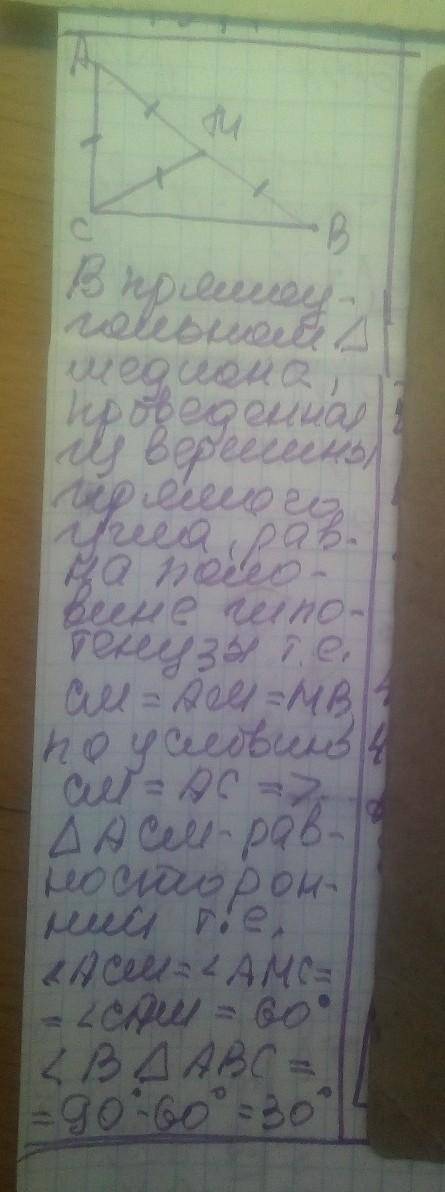 A
M
C
B
В прямоу-
гольном Δ
медиана,
проведенная
из вершины
прямого
угла, рав-
на поло-
вине гипо-
тенузы т.е.
CM = AM = MB,
по условию
CM = AC =>
Δ ACM - рав-
ностορон-
ний т.е.
∠ACM = ∠AMC =
= ∠CAM = 60°
∠B Δ ABC =
= 90° - 60° = 30°